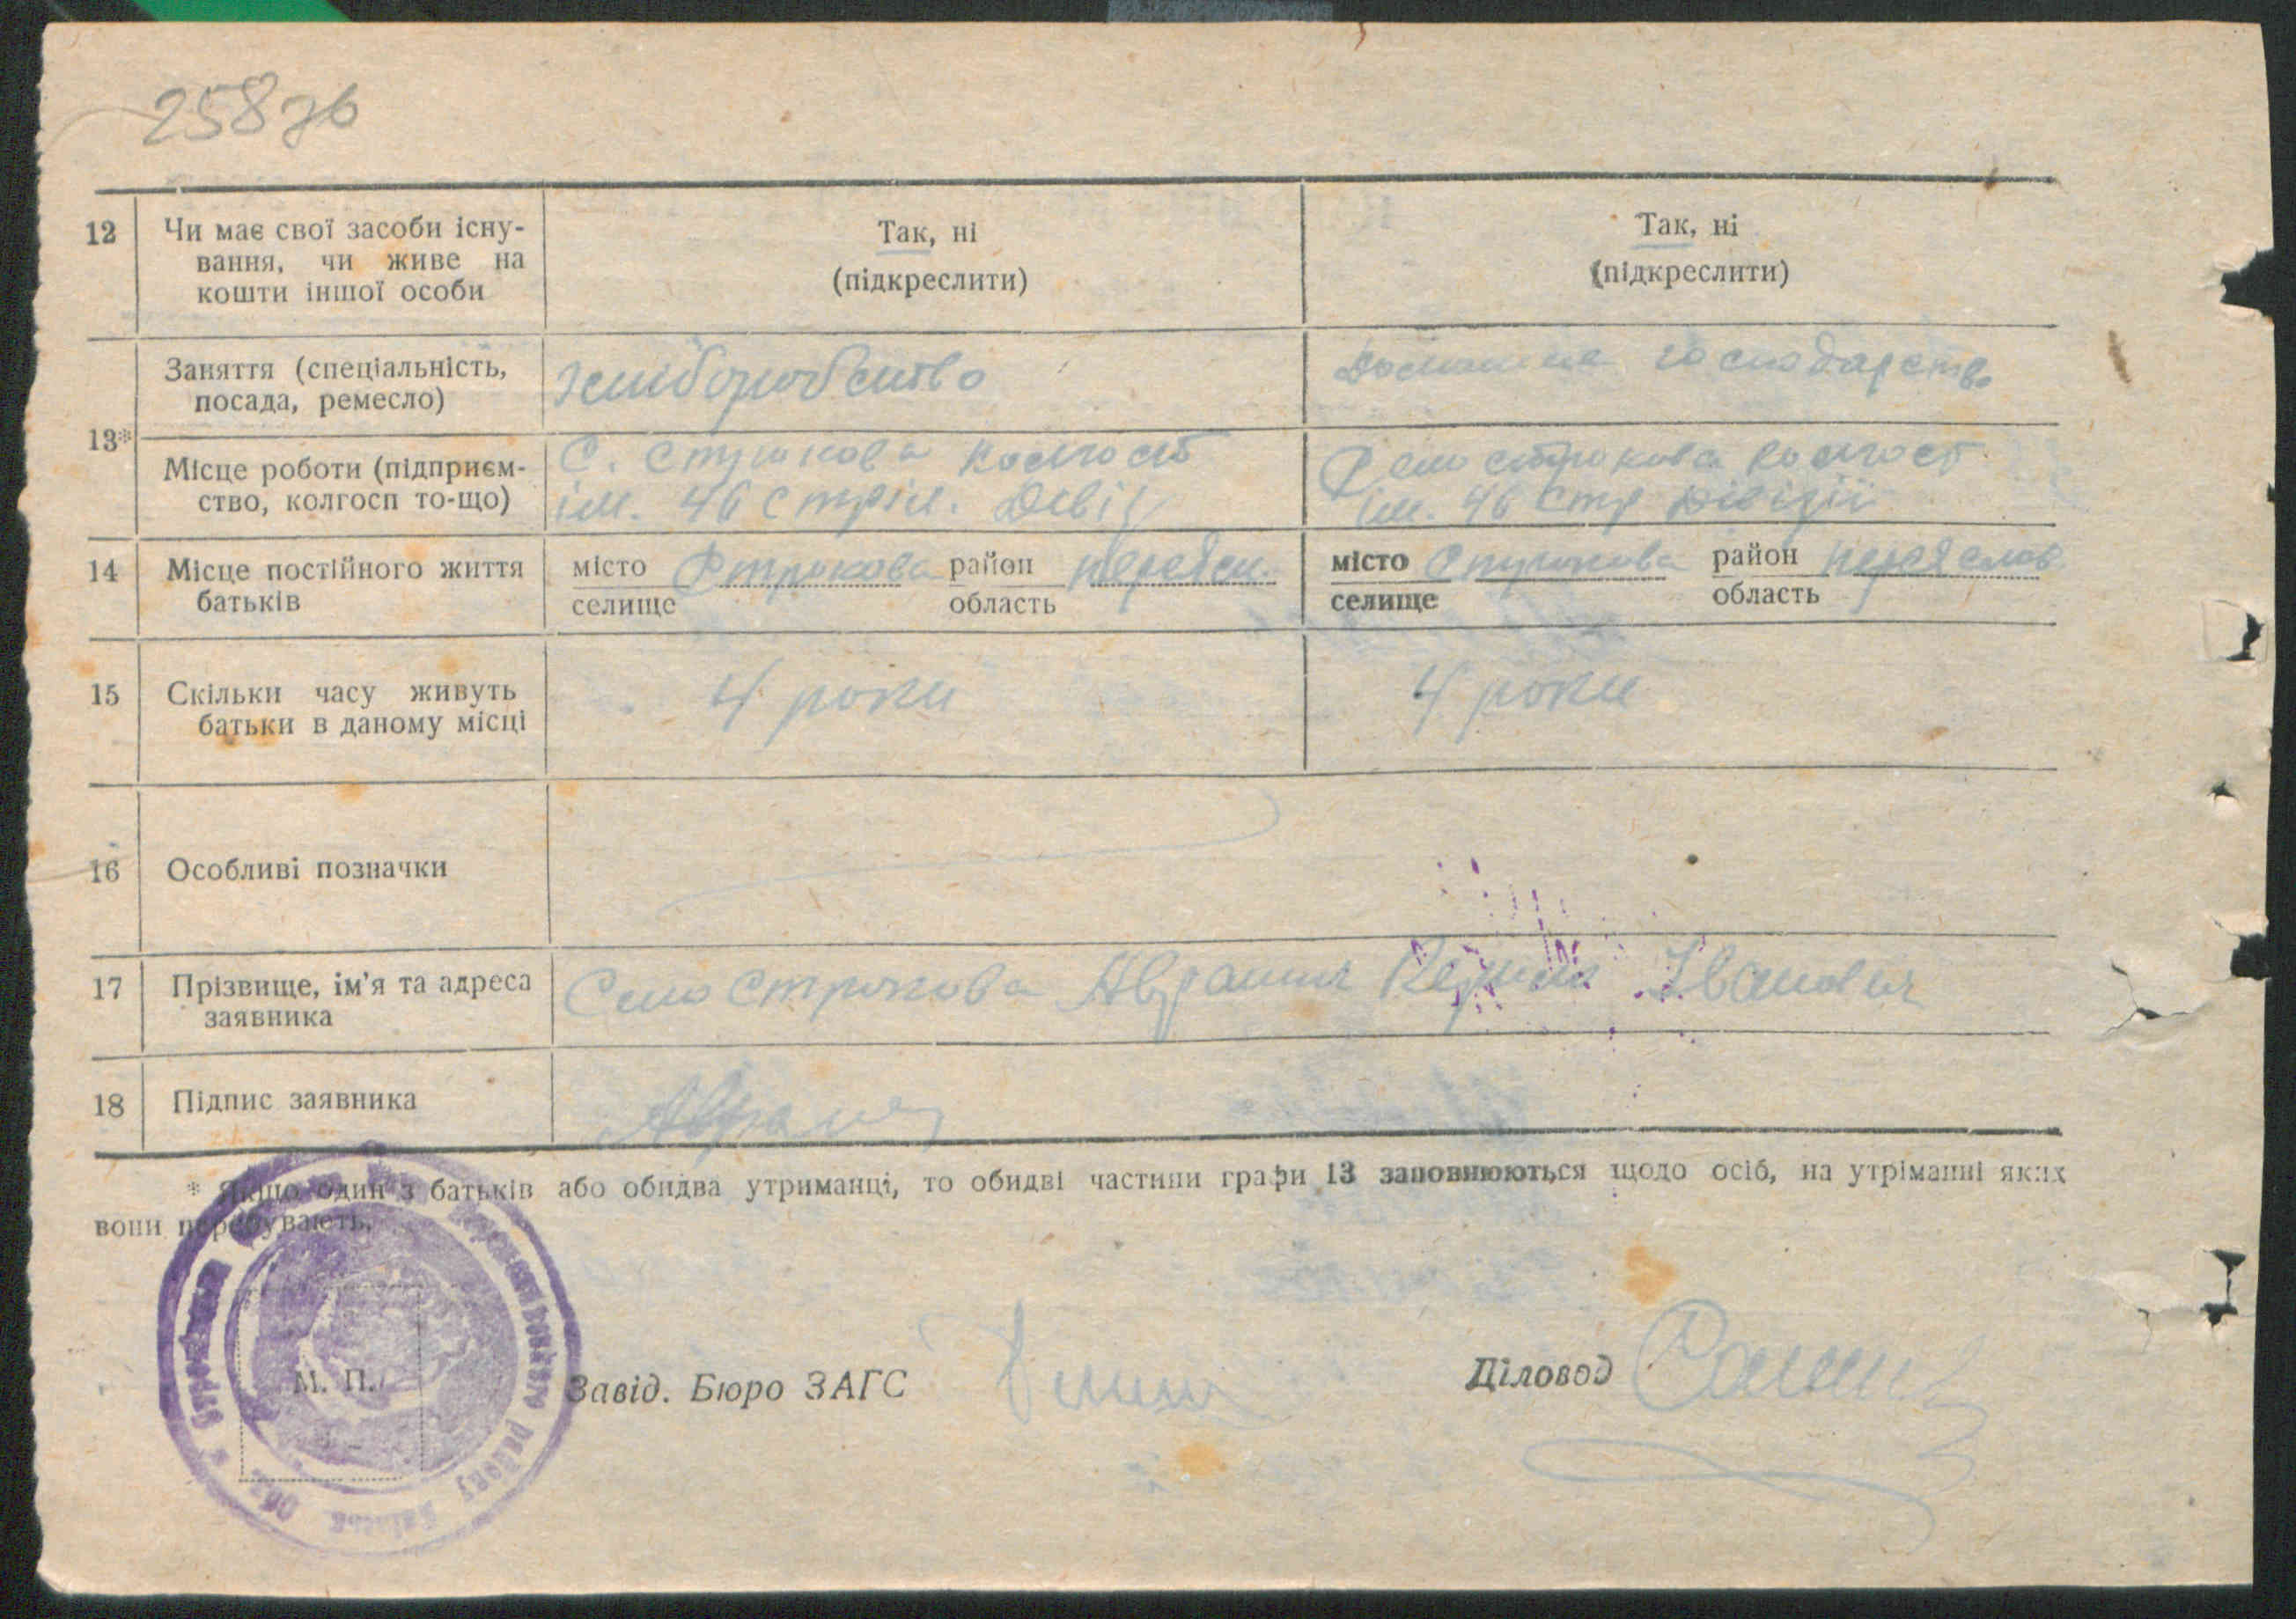 258зв
12 Чи має свої засоби існу- Так, ні Так, ні
вання, чи живе на (підкреслити) (підкреслити)
кошти іншої особи
Заняття (спеціальність, хліборобство домашнє господарство
посада, ремесло)
13*
Місце роботи (підприєм- С. Строкова колгосп Село Строкова колгосп
ство, колгосп то-що) ім. 46 Стріл. Дивіз ім. 46 Стр Дівізії
14 Місце постійного життя місто Строкова район місто Строкова район
батьків селище область селище область
15 Скільки часу живуть 4 роки 4 роки
батьки в даному місці
16 Особливі позначки
17 Прізвище, ім'я та адреса Село Строкова Іванович
заявника
18 Підпис заявника
* Якщо один з батьків або обидва утриманці, то обидві частини графи 13 заповнюються щодо осіб, на утріманні яких
вони перебувають.
М. П.
Завід. Бюро ЗАГС Діловод